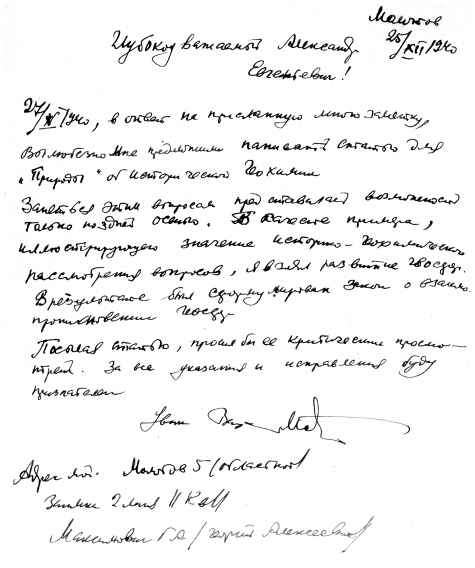 Молотов
25/XII 1940
Глубокоуважаемый Александр
Евгеньевич!
27/X 1940, в ответ на присланную мною заметку,
Вы любезно мне предложили написать статью для
"Природы" об исторической геохимии
Заняться этим вопросам представилась возможность
только поздней осенью. В качестве примера,
иллюстрирующего значение историко-геохимического
рассмотрения вопросов, я взял развитие геосфер.
В результате был сформулирован закон о взаимо
проникновении геосфер
Посылая статью, просил бы ее критически просмо-
треть. За все указания и исправления буду
признателен
Ваш
Адрес мой. Молотов 5 /областной/
2
Максимович Г.А /Георгий Алексеевич/